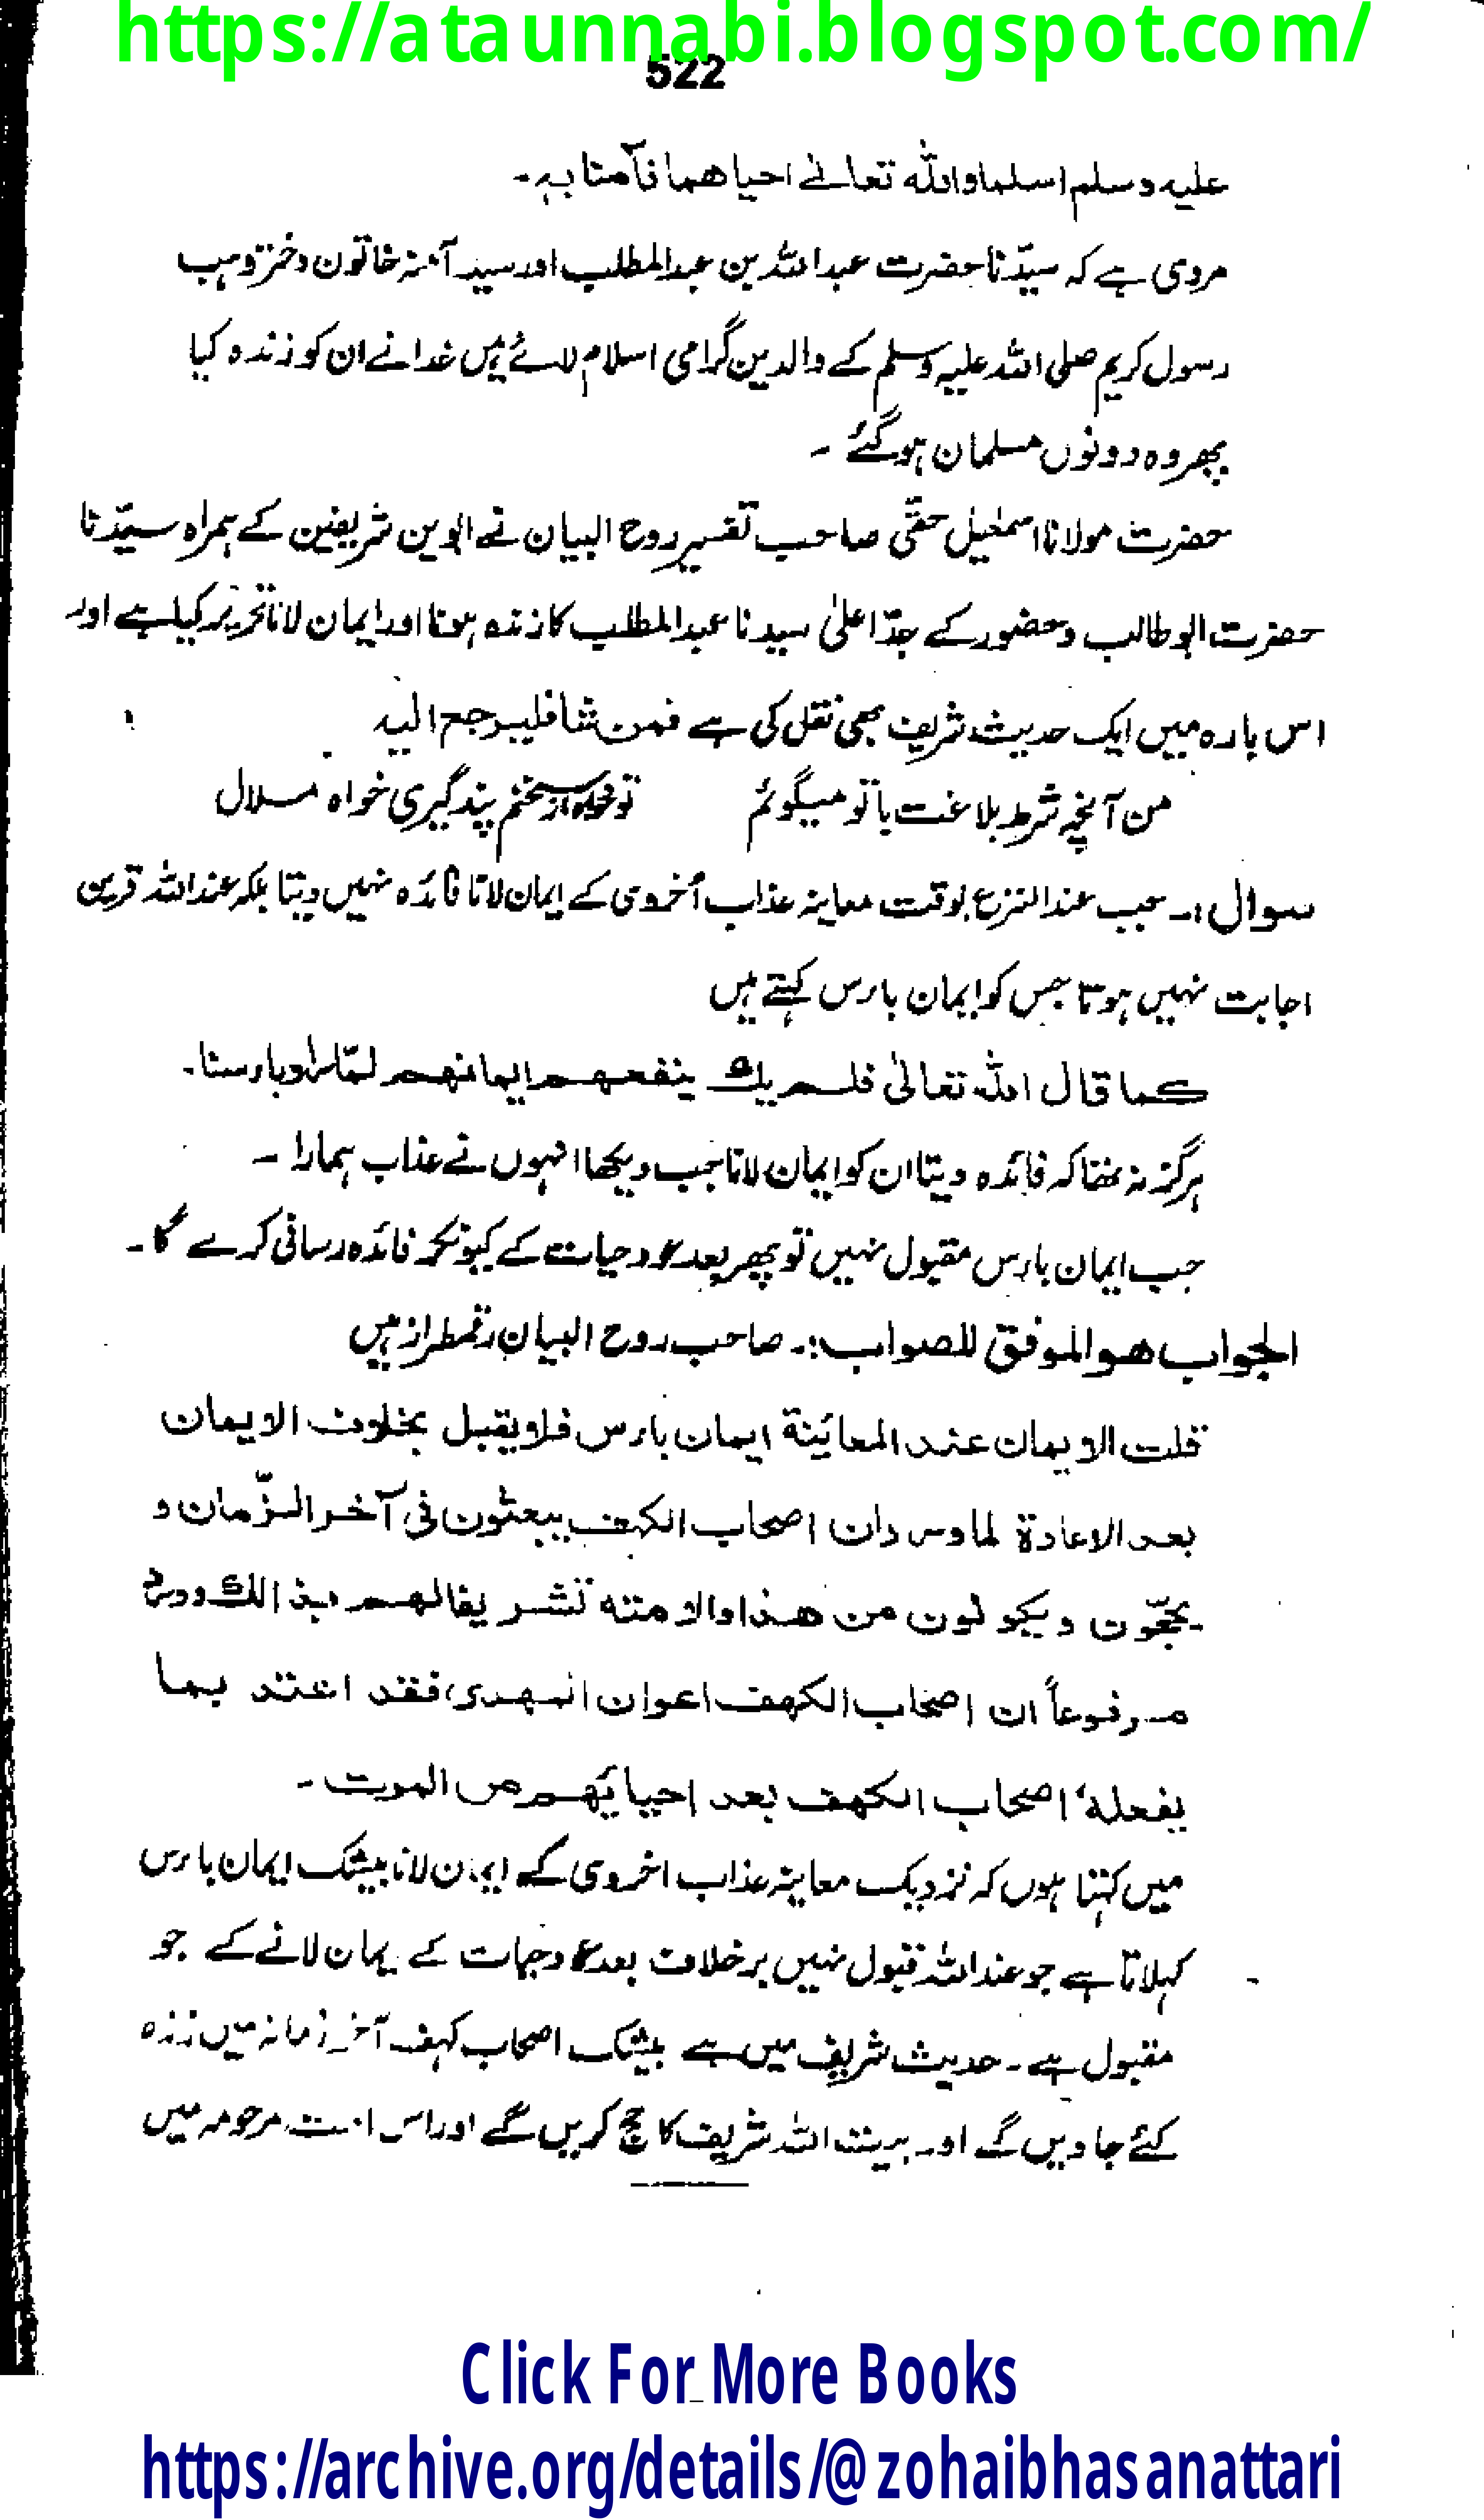 https://ataunnabi.blogspot.com/
522
علیہ وسلم اسلما واللہ تعالےٰ احیاھما فآمنا بہ۔
مروی ہے کہ سیّدنا حضرت عبداللہ بن عبدالمطلب اور سید آمنہ خاتون دختر وہب
رسول کریم صلی اللہ علیہ وسلم کے والدین گرامی اسلام لائے ہیں خدا نے ان کو زندہ کیا
پھر وہ دونوں مسلمان ہو گئے ۔
حضرت مولانا اسمٰعیل حقّی صاحب تفسیر روح البیان نے ابوین شریفین کے ہمراہ سیّدنا
حضرت ابو طالب و حضور کے جدّ اعلیٰ سیدنا عبدالمطلب کا زندہ ہونا اور ایمان لانا تحریر کیا ہے اور
اس بارہ میں ایک حدیث شریف بھی نقل کی ہے فمن شا فلیرجع الیہ
من آنچہ شرط بلاغت با تو میگوئم تو خواہ از سخنم پند گیری خواہ ملال
سوال :۔ جب عندالنزع بوقت معاینہ عذاب اُخروی کے ایمان لانا فائدہ نہیں دیتا بلکہ عنداللہ قرین
اجابت نہیں ہوتا جس کو ایمان بارس کہتے ہیں
کما قال اللہ تعالیٰ فلم یک ینفعھم ایمانھم لمّا راو باسنا۔
ہرگز نہ تھا کہ فائدہ دیتا ان کو ایمان لانا جب دیکھا انہوں نے عذاب ہمارا ۔
جب ایمان بارس مقبول نہیں تو پھر بعد عود حیات کے کیونکر فائدہ رسانی کرے گا۔
الجواب ھو الموفق للصواب :۔ صاحب روح البیان رقمطراز ہیں
قلت الایمان عند المعائنۃ ایمان بارس فلا یقبل بخلاف الایمان
بعد الاعادۃ لما ورد ان اصحاب الکہف یبعثون فی آخر الزّمان و
یحجّون و یکونون من ھذا الامتہ تشریفا لھم بذالک وورد
مرفوعاً ان اصحاب الکھف اعوان المھدی فقد اعتد بما
یفعلہ اصحاب الکھف بعد احیائھم من الموت ۔
میں کہتا ہوں کہ نزدیک معاینہ عذاب اخروی کے ایمان لانا بیشک ایمان بارس
کہلاتا ہے جو عنداللہ قبول نہیں برخلاف بعد عود حیات کے ایمان لانے کے جو
مقبول ہے۔ حدیث شریف میں ہے بیشک اصحاب کہف آخر زمانہ میں زندہ
کئے جاویں گے اور بیت اللہ شریف کا حج کریں گے اور اس امت مرحومہ میں
Click For More Books
https://archive.org/details/@zohaibhasanattari